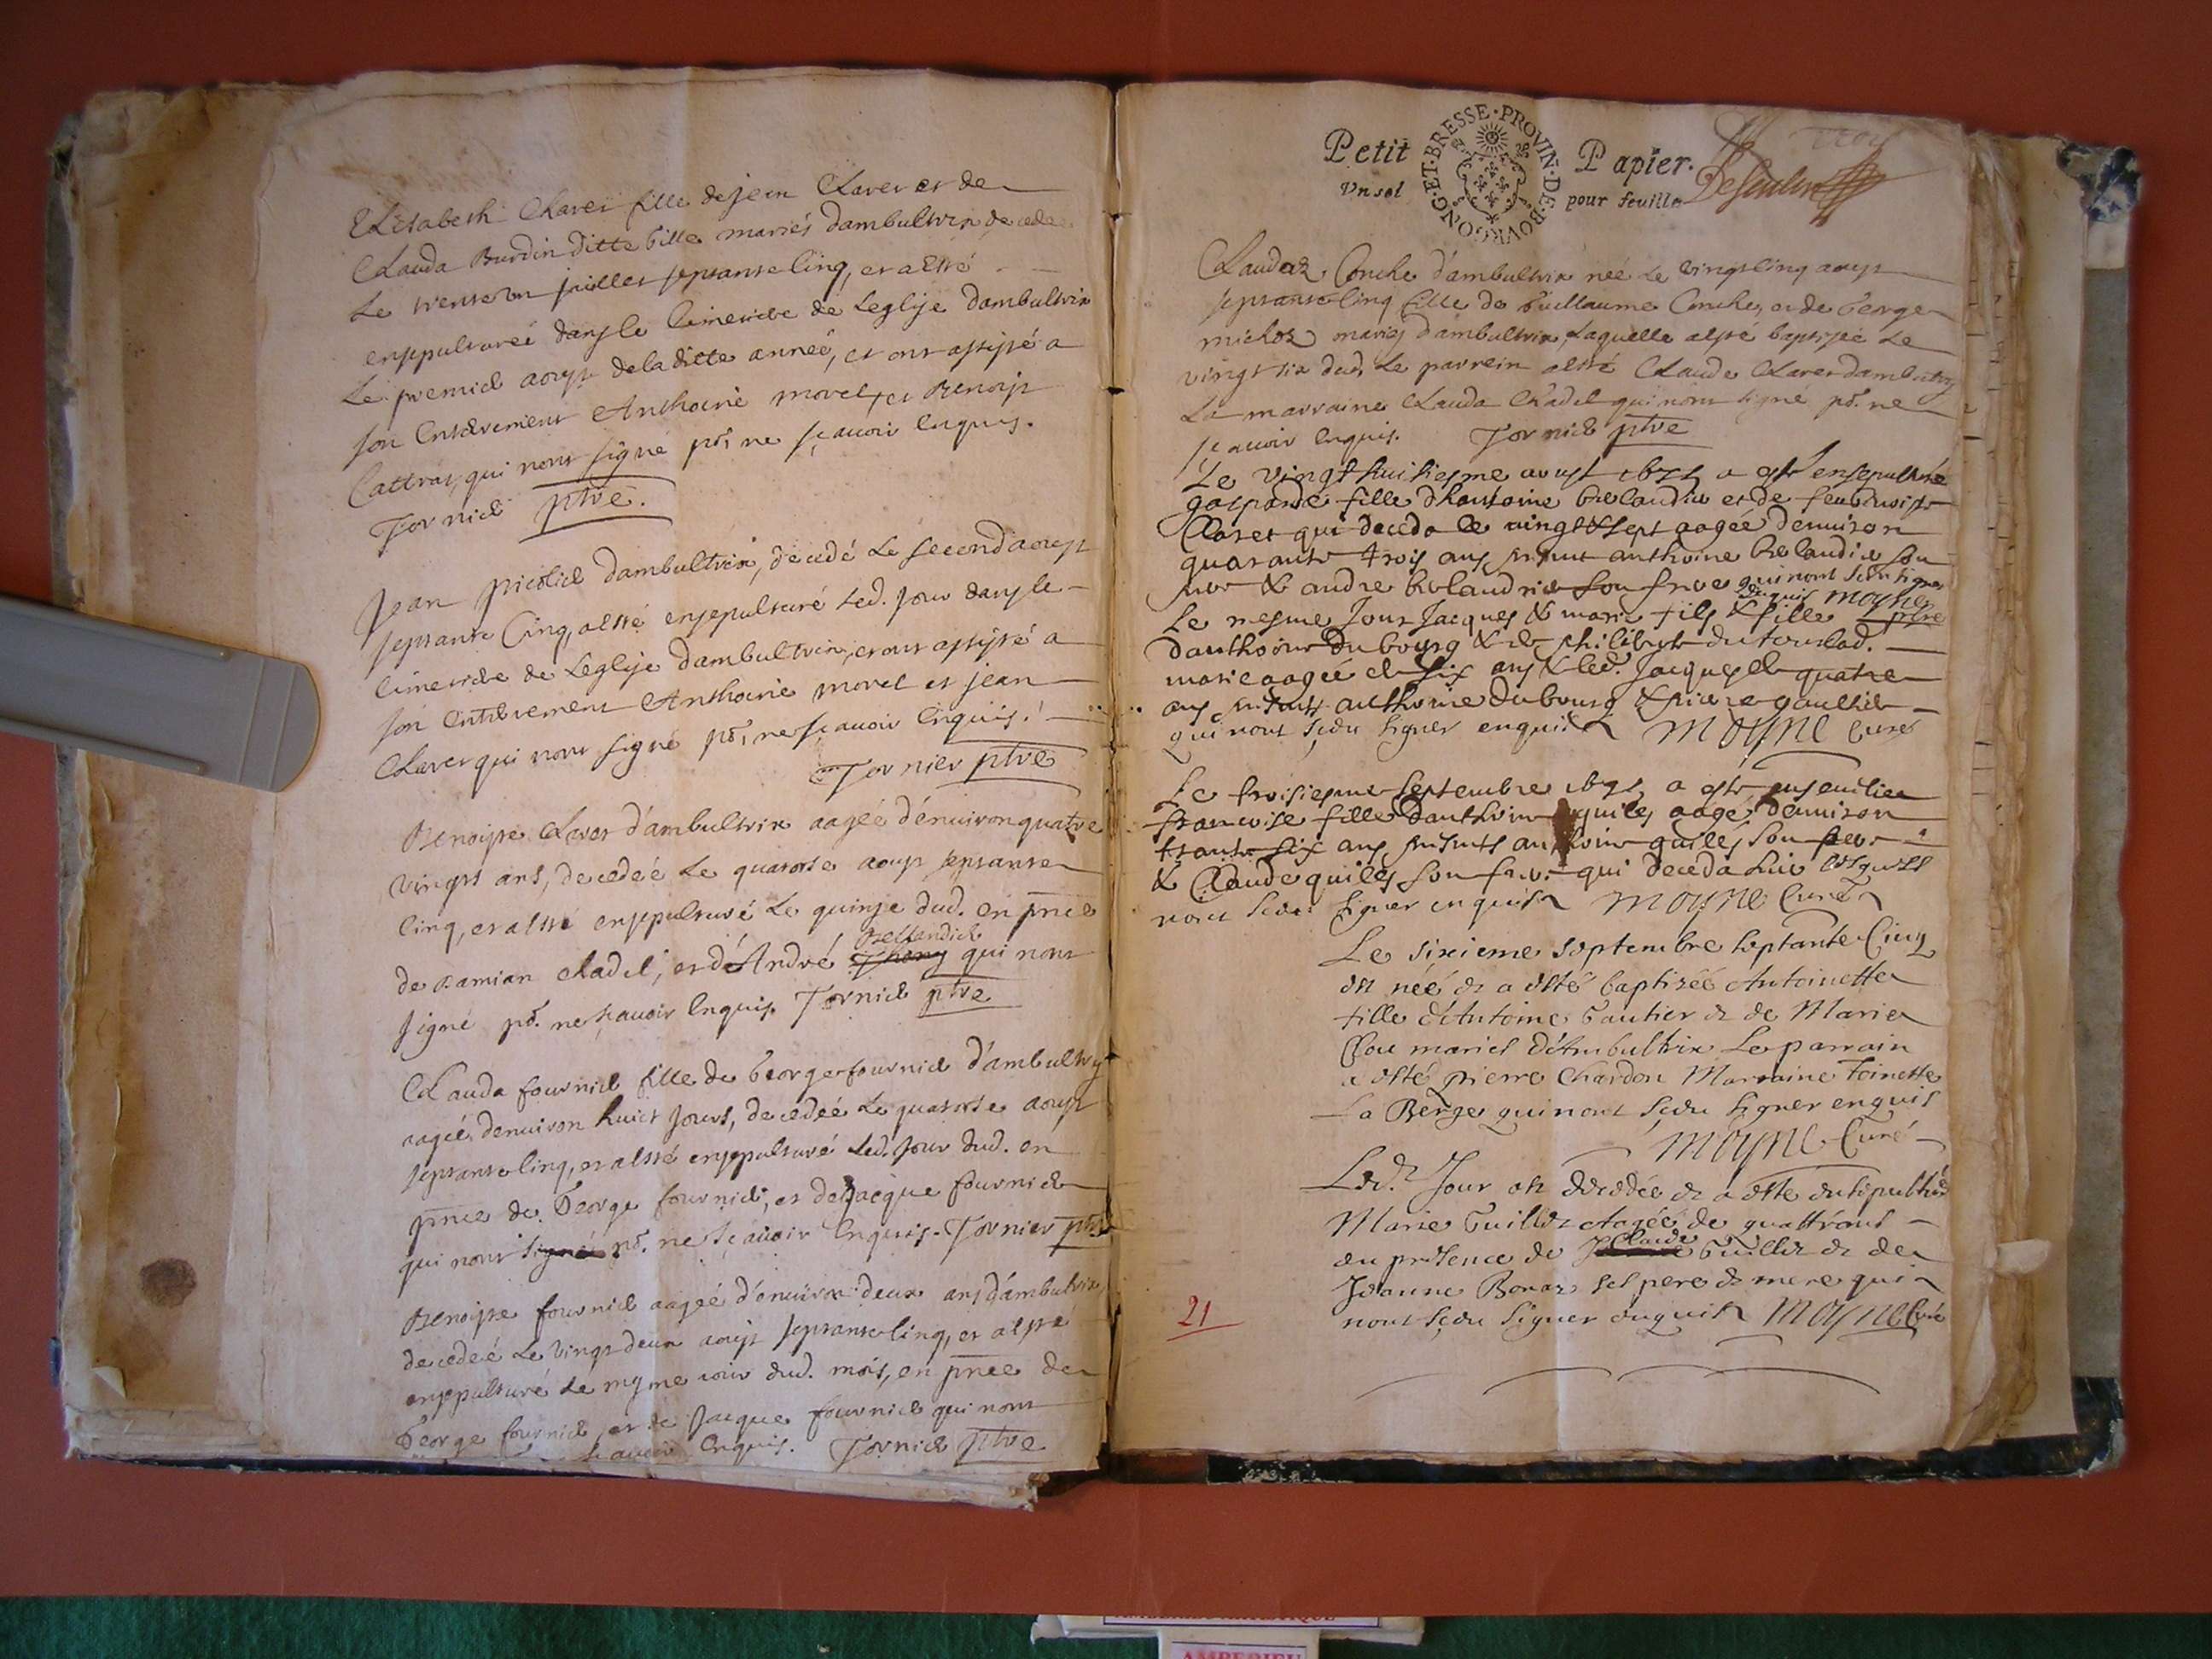 Elisabeth Claret fille de jean Claret et de
Clauda Burdin ditte bille mariés dambultrix decedee
le trente un juillet septante cinq, et a esté
ensepulturéé dans le cimetiere de Leglise dambultrix
Le premier aoust de la ditte année, et ont assisté a
son enterrement Anthoine morel, et Benoist
Cattras, qui nont signé pr. ne sçavoir enquis.
Tornier ptre.
Jean picolier dambultrix, decedé Le second aoust
septante cinq, a esté ensepulturé led. jour dans le
cimetiere de Leglise dambultrix, et ont assisté a
son enterrement Anthoine morel et jean
Claret qui nont signé pr. ne scavoir enquis.
Tornier ptre
Benoiste Claret d'ambultrix aagéé d'enuiron quatre
vingts ans, decedéé Le quatorse aoust septante
cinq, et a esté ensepulturé Le quinse dud. en pnce
de Damian chadel, et d'André Bellandier qui nont
signé pr. ne scavoir enquis. Tornier ptre
Clauda fournier fille de George fournier d'ambultrix
aagéé denuiron huict jours, decedéé Le quatorse aoust
septante cinq, et a esté ensepulturé Led. jour dud. en
pnce de George fournier, et de jacque fournier
qui nont signé pr. ne sçavoir enquis. Tornier ptre
Benoiste fournier aagéé d'enuiron deux ans d'ambultrix
decedéé Le vingt deux aoust septante cinq, et a esté
ensepulturé Le mesme jour dud. mois, en pnce de
George fournier, et de jacque fournier qui nont
scavoir enquis. Tornier ptre
Petit Papier.
Vn sol pour feuille
BOVRGONG·ET·BRESSE·PROVIN·DE·
Claudaz Conche d'ambultrix néé Le vingt cinq aoust
septante cinq fille de Guillaume Conche, et de George
michoz mariés d'ambultrix, Laquelle a esté baptiséé Le
vingt six dud. Le parrein a esté Claude Claret dambultrix
La marraine Clauda Chadel qui nont signé pr. ne
scavoir enquis. Tornier ptre
Le vingt huitiesme aoust 1675 a esté ensepulturé
gasparde fille dhantoine Belandier et de feu benoiste
Claret qui deceda le vingt & sept aagéé denuiron
quarante trois ans presents anthoine Belandier son
pere & andre Belandrier son frere qui nont sceu signer
enquis moyne ptre
Le mesme Jour Jacques & marie fils & fille
d'anthoine Dubourg & de philiberte du tour lad.
marie aagéé de six ans & led. Jacques de quatre
ans presents anthoine Dubourg & pierre gaultier
qui nont sçeu signer enquis MOYNE Curé
Le troisiesme Septembre 1675 a esté ensevelie
francoise fille Danthoine quiles aagé denuiron
trante six ans presents anthoine quiles son pere
& Claude quiles son frere qui deceda hier lesquels
nont sceu signer enquis MOYNE Curé
Le sixieme septembre septante Cinq
est néé et a esté baptiséé Antoinette
fille d'Antoine Gautier et de Marie
Clou mariés d'Ambultrix Le parrain
a esté pierre Chardon Marraine Toinette
La Berge qui nont sçeu signer enquis
MOYNE Curé
Led.t Jour est decedéé et a esté ensepulturé
Marie Guillet Aagéé de quattrans
en presence de Claude Guillet et de
Jeanne Bonaz ses pere et mere qui
nont sçeu signer enquis MOYNE Curé
21